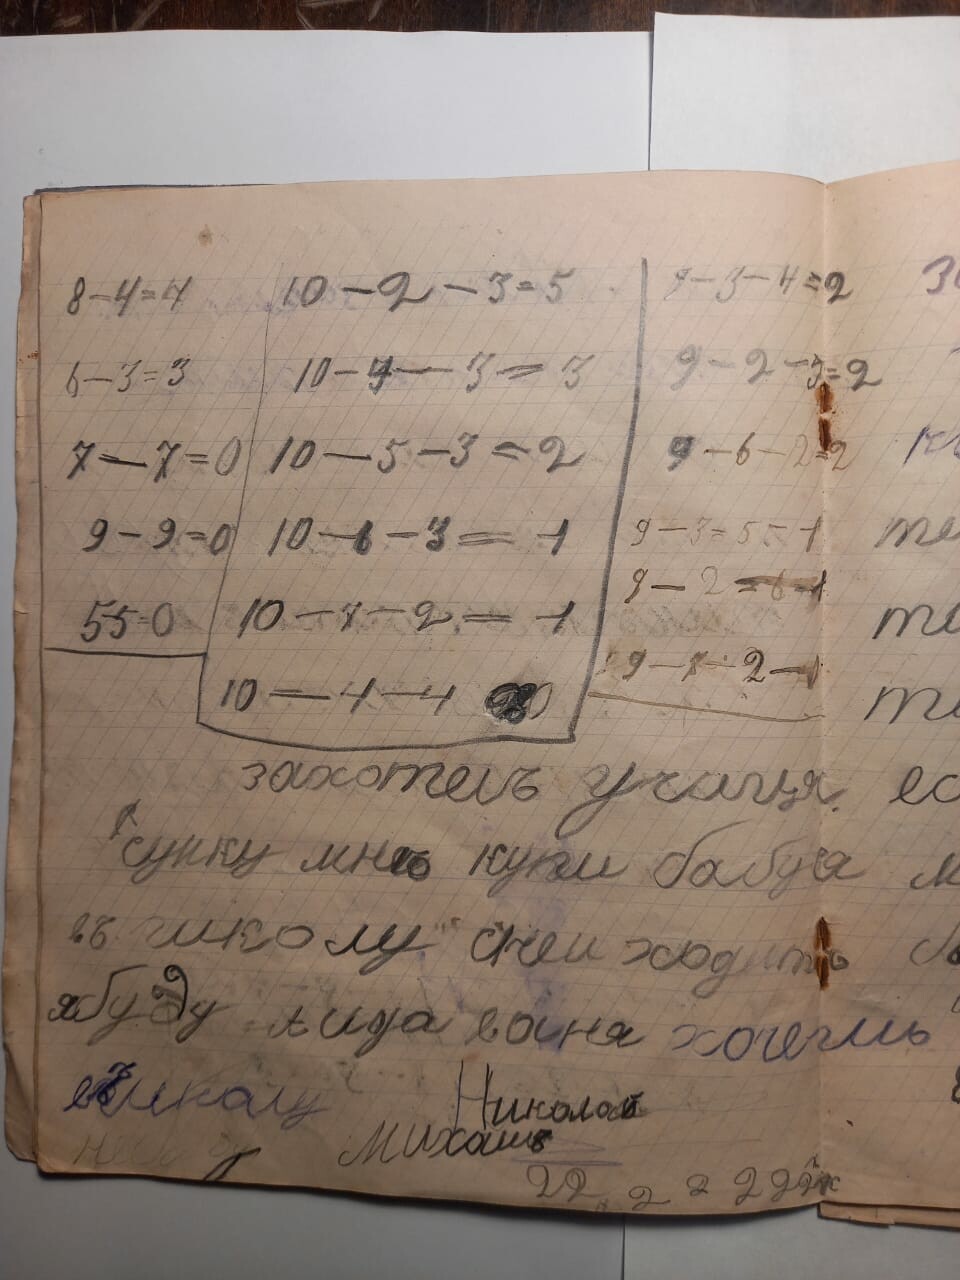 8-4=4
6-3=3
7-7=0
9-9=0
55=0
10-2-3=5
10-4-3=3
10-5-3=2
10-6-3=1
10-7-2=1
10-4-4 0
9-3-4=2
9-2-3=2
9-6-2=2
9-3=5=1
9-2=6-1
9-7-2-
захотелъ учиця. ес
сумку мнѣ купи бабуя м
въ школу снеи ходить
ябуду
хочешь
вшколу
Николай
Михаилъ
22 2 2 2 2